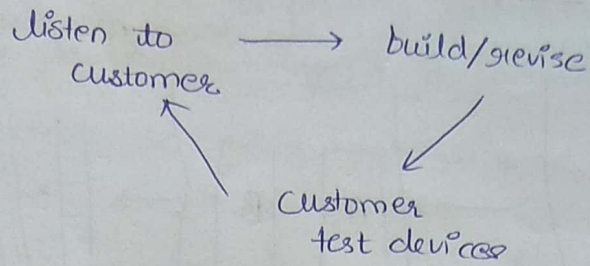 listen to
customer
build/revise
customer
test devices